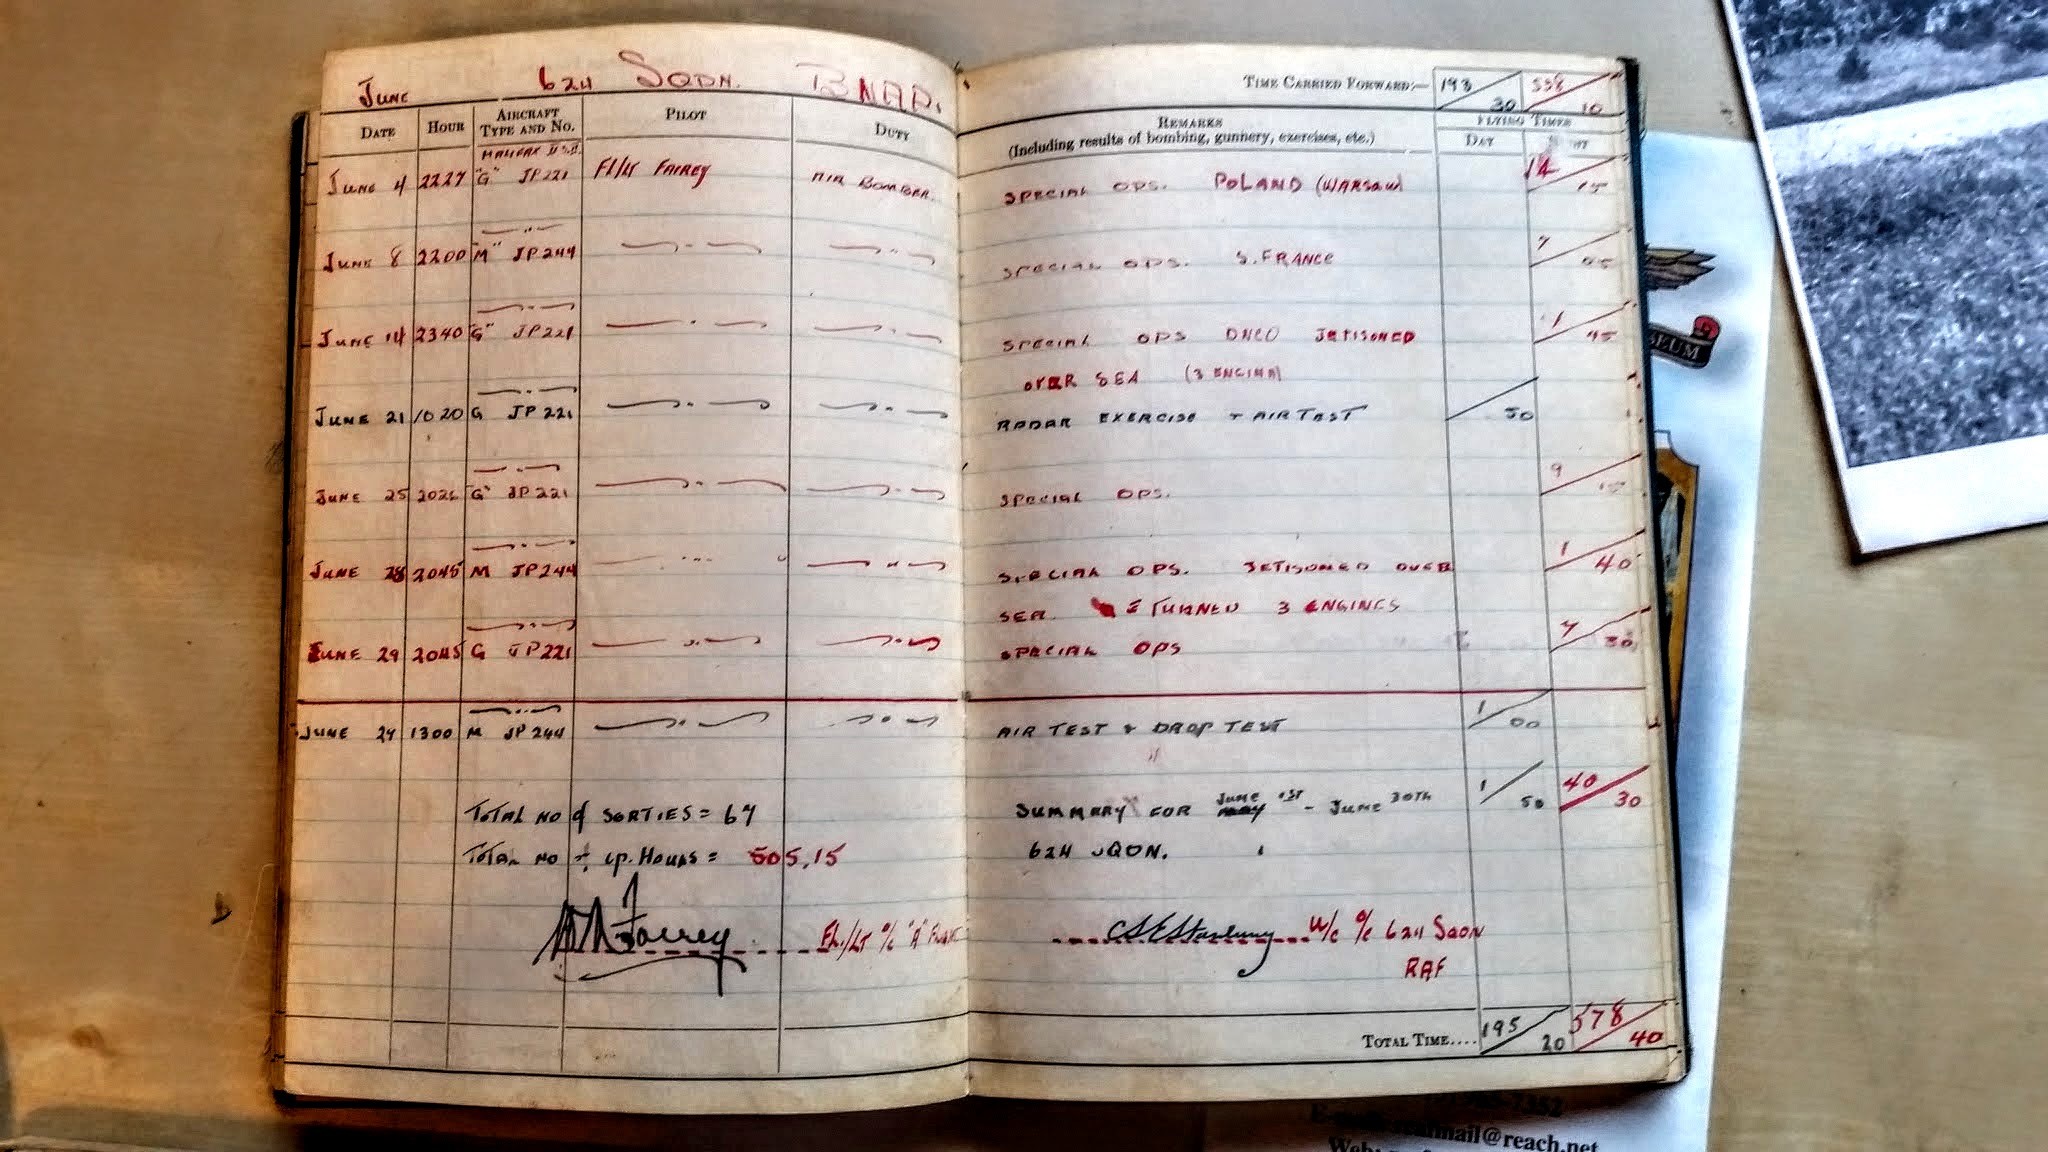 JUNE 624 SQDN. BNAF.
TIME CARRIED FORWARD:— 193 30 538 10
DATE HOUR AIRCRAFT TYPE AND NO. PILOT DUTY
REMARKS (Including results of bombing, gunnery, exercises, etc.) FLYING TIMES DAY
HALIFAX
JUNE 4 2227 "G" JP221 Fl/Lt FAIREY AIR BOMBER. SPECIAL OPS. POLAND (WARSAW) 14 15
JUNE 8 2200 "M" JP244 SPECIAL OPS. S. FRANCE 7
JUNE 14 2340 "G" JP221 SPECIAL OPS DNCO JETISONED 1 45
OVER SEA (3 ENGINE)
JUNE 21 1020 G JP221 RADAR EXERCISE + AIR TEST 50
JUNE 25 "G" JP221 SPECIAL OPS. 9 15
JUNE 28 2045 M JP244 SPECIAL OPS. JETISONED OVER 1 40
SEA. 3 ENGINES
JUNE 29 2045 G JP221 SPECIAL OPS 7 30
JUNE 1300 M JP244 AIR TEST & DROP TEST 1 00
1 50 40 30
TOTAL NO of SORTIES = 67 SUMMARY FOR JUNE 1ST - JUNE 30TH
TOTAL NO OP. HOURS = 505.15 624 SQDN.
FL./LT O/C "A" FLIGHT W/C O/C 624 SQDN
RAF
TOTAL TIME.... 195 20 578 40
SEUM
mail@reach.net